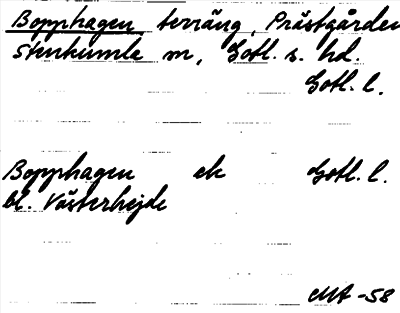 Bopphagen terräng, Prästgården
Stenkumla sn, Gotl. s. hd.
Gotl. l.
Bopphagen ek Gotl. l.
bl. Västerhejde
MA -58